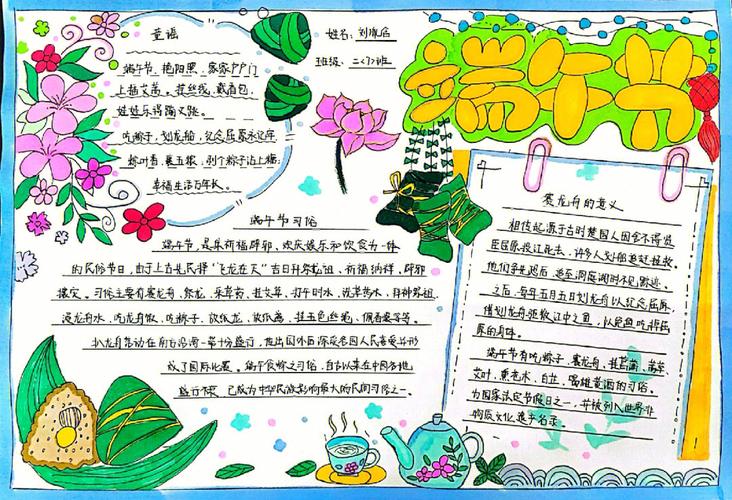 端午节
姓名：刘胤启
班级：二〈7〉班
童谣
端午节，艳阳照，家家户户门
上插艾蒿。挂丝线，戴香包，
娃娃乐得蹦又跳。
吃粽子，划龙船，纪念屈原永记牢
粽叶香，裹五粮，剥个粽子沾上糖，
幸福生活万年长。
端午节习俗
端午节，是集祈福辟邪、欢庆娱乐和饮食为一体
的民俗节日，由于上古先民择“飞龙在天”吉日拜祭龙祖、祈福纳祥、辟邪
攘灾。习俗主要有赛龙舟、祭龙、采草药、挂艾草、打午时水、洗草药水、拜神祭祖、
浸龙舟水、吃龙舟饭、吃粽子、放纸龙、放纸鸢、拴五色丝线、佩香囊等等。
扒龙舟活动在南方沿海一带十分盛行，传出国外后深受各国人民喜爱并形
成了国际比赛。端午食粽之习俗，自古以来在中国各地
盛行不衰，已成为中华民族影响最大的民间习俗之一。
赛龙舟的意义
相传起源于古时楚国人因舍不得贤
臣屈原投江死去，许多人划船追赶拯救。
他们争先恐后，追至洞庭湖时不见踪迹。
之后，每年五月五日划龙舟以纪念屈原。
借划龙舟驱散江中之鱼，以免鱼吃掉屈
原的身体。
端午节有吃粽子，赛龙舟，挂菖蒲、蒿草、
艾叶，薰苍术、白芷，喝雄黄酒的习俗。
为国家法定节假日之一，并被列入世界非
物质文化遗产名录。